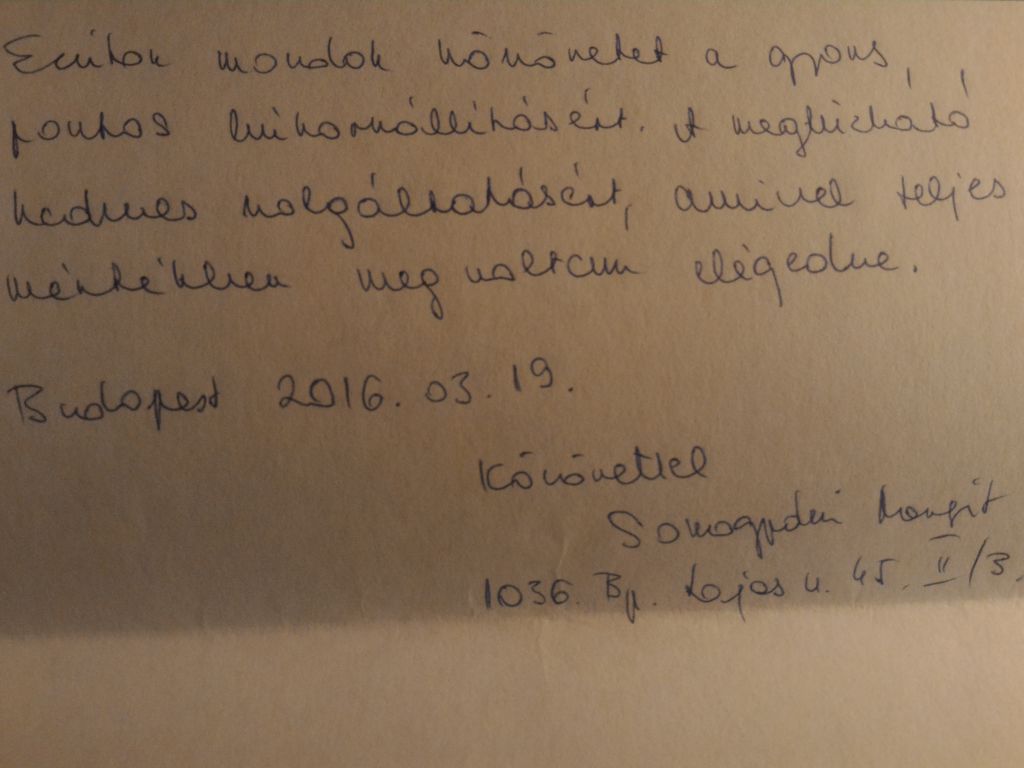 Ezúton mondok köszönetet a gyors,
pontos kiszállításért. A megbízható,
kedves szolgáltatásért, amivel teljes
mértékben meg voltam elégedve.
Budapest 2016. 03. 19.
Köszönettel
Somogyvári Margit
1036. Bp. Lajos u. 45. II/3.